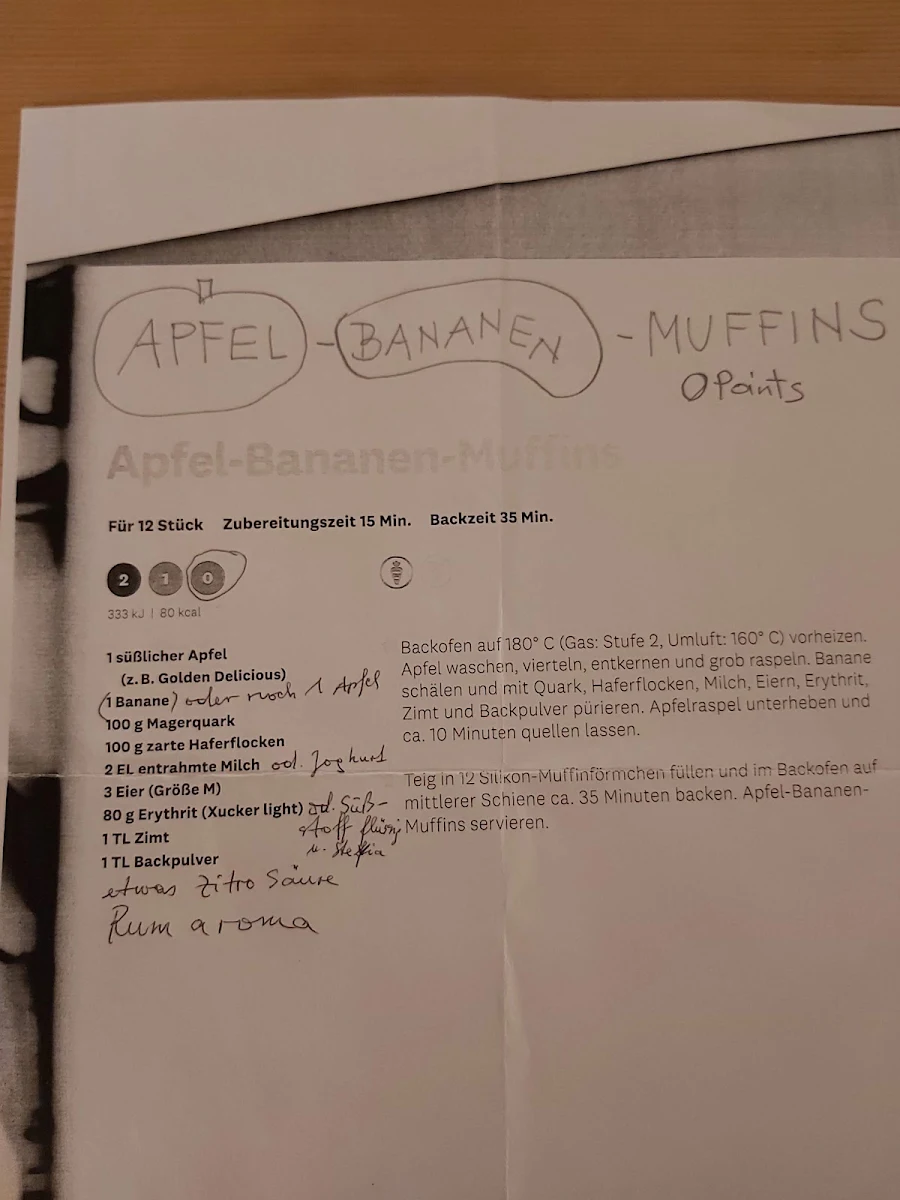 APFEL - BANANEN - MUFFINS
0 Points
Apfel-Bananen-Muffins
Für 12 Stück Zubereitungszeit 15 Min. Backzeit 35 Min.
2 1 0
333 kJ | 80 kcal
1 süßlicher Apfel
(z. B. Golden Delicious)
(1 Banane) oder noch 1 Apfel
100 g Magerquark
100 g zarte Haferflocken
2 EL entrahmte Milch od. Joghurt
3 Eier (Größe M)
80 g Erythrit (Xucker light) od. Süß-
stoff flüssig
1 TL Zimt
u. Stevia
1 TL Backpulver
etwas Zitro Säure
Rum aroma
Backofen auf 180° C (Gas: Stufe 2, Umluft: 160° C) vorheizen.
Apfel waschen, vierteln, entkernen und grob raspeln. Banane
schälen und mit Quark, Haferflocken, Milch, Eiern, Erythrit,
Zimt und Backpulver pürieren. Apfelraspel unterheben und
ca. 10 Minuten quellen lassen.
Teig in 12 Silikon-Muffinförmchen füllen und im Backofen auf
mittlerer Schiene ca. 35 Minuten backen. Apfel-Bananen-
Muffins servieren.